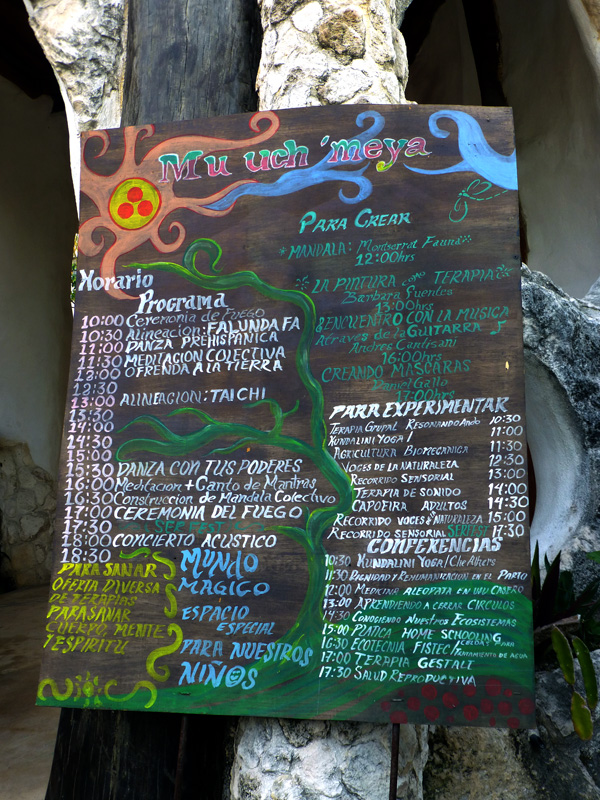 Mu uch 'meya
Horario
Programa
10:00 Ceremonia de Fuego
10:30 Alineacion: FALUNDA FA
11:00 DANZA PREHISPANICA
11:30 MEDITACION COLECTIVA
12:00 OFRENDA A LA TIERRA
12:30
13:00 ALINEACION: TAICHI
13:30
14:00
14:30
15:00
15:30 DANZA CON TUS PODERES
16:00 Meditacion + Canto de Mantras
16:30 Construccion de Mandala Colectivo
17:00 CEREMONIA DEL FUEGO
17:30
18:00 CONCIERTO ACUSTICO
18:30
PARA SANAR
OFERTA DIVERSA
DE TERAPIAS
PARA SANAR
CUERPO, MENTE
Y ESPIRITU
MUNDO
MAGICO
ESPACIO
ESPECIAL
PARA NUESTROS
NIÑOS
PARA CREAR
*MANDALA: Montserrat
12:00hrs
LA PINTURA como TERAPIA
Barbara Fuentes
13:00hrs
ENCUENTRO CON LA MUSICA
A traves de la GUITARRA
Andres
16:00hrs
CREANDO MASCARAS
Daniel Gallo
17:00hrs
PARA EXPERIMENTAR
TERAPIA GRUPAL RESONANDO ANDO 10:30
KUNDALINI YOGA / 11:00
AGRICULTURA BIOMECANICA 11:30
VOCES DE LA NATURALEZA 12:30
RECORRIDO SENSORIAL 13:00
TERAPIA DE SONIDO 14:00
CAPOFIRA ADULTOS 14:30
RECORRIDO VOCES NATURALEZA 15:00
RECORRIDO SENSORIAL 17:30
CONFEXENCIAS
10:30 KUNDALINI YOGA / Che Athers
11:30 DIGNIDAD Y REHUMANIZACION EN EL PARTO
12:00 MEDICINA ALEOPATA EN UVU
13:00 APRENDIENDO A CERRAR CIRCULOS
14:30 CONOCIENDO NUESTROS ECOSISTEMAS
15:00 PLATICA HOME SCHOOLING
16:30 ECOTECNIA FISTEC (CELDAS PARA
TRATAMIENTO DE AGUA
17:00 TERAPIA GESTALT
17:30 SALUD REPRODUCTIVA